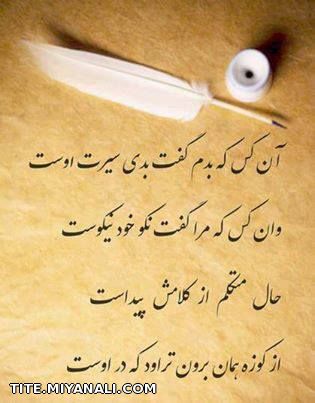 آن کس که بدم گفت بدی سیرت اوست
وان کس که مرا گفت نکو خود نیکوست
حال متکلم از کلامش پیداست
از کوزه همان برون تراود که در اوست
TITE.MIYANALI.COM